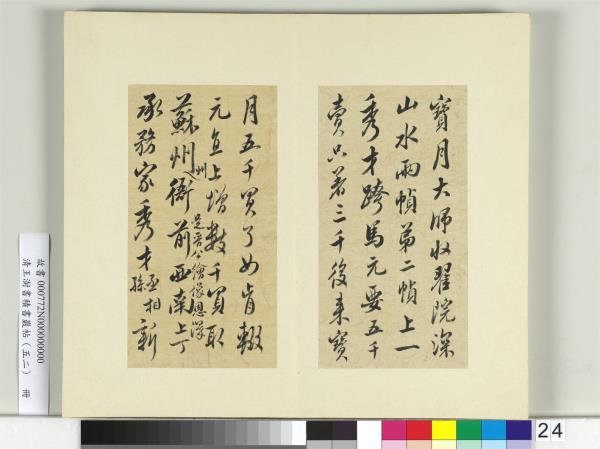 寶月大師收翟院深
山水兩幀第二幀上一
秀才跨馬元要五千
賣只著三千後來寶
月五千買了如肯輟
元直上增數千買取
蘇州州衙前西南上丁
是晉公繪像恩澤
承務家秀才丞相孫新
故書 000772N000000000
清王澍書積書巖帖（五二） 冊
24